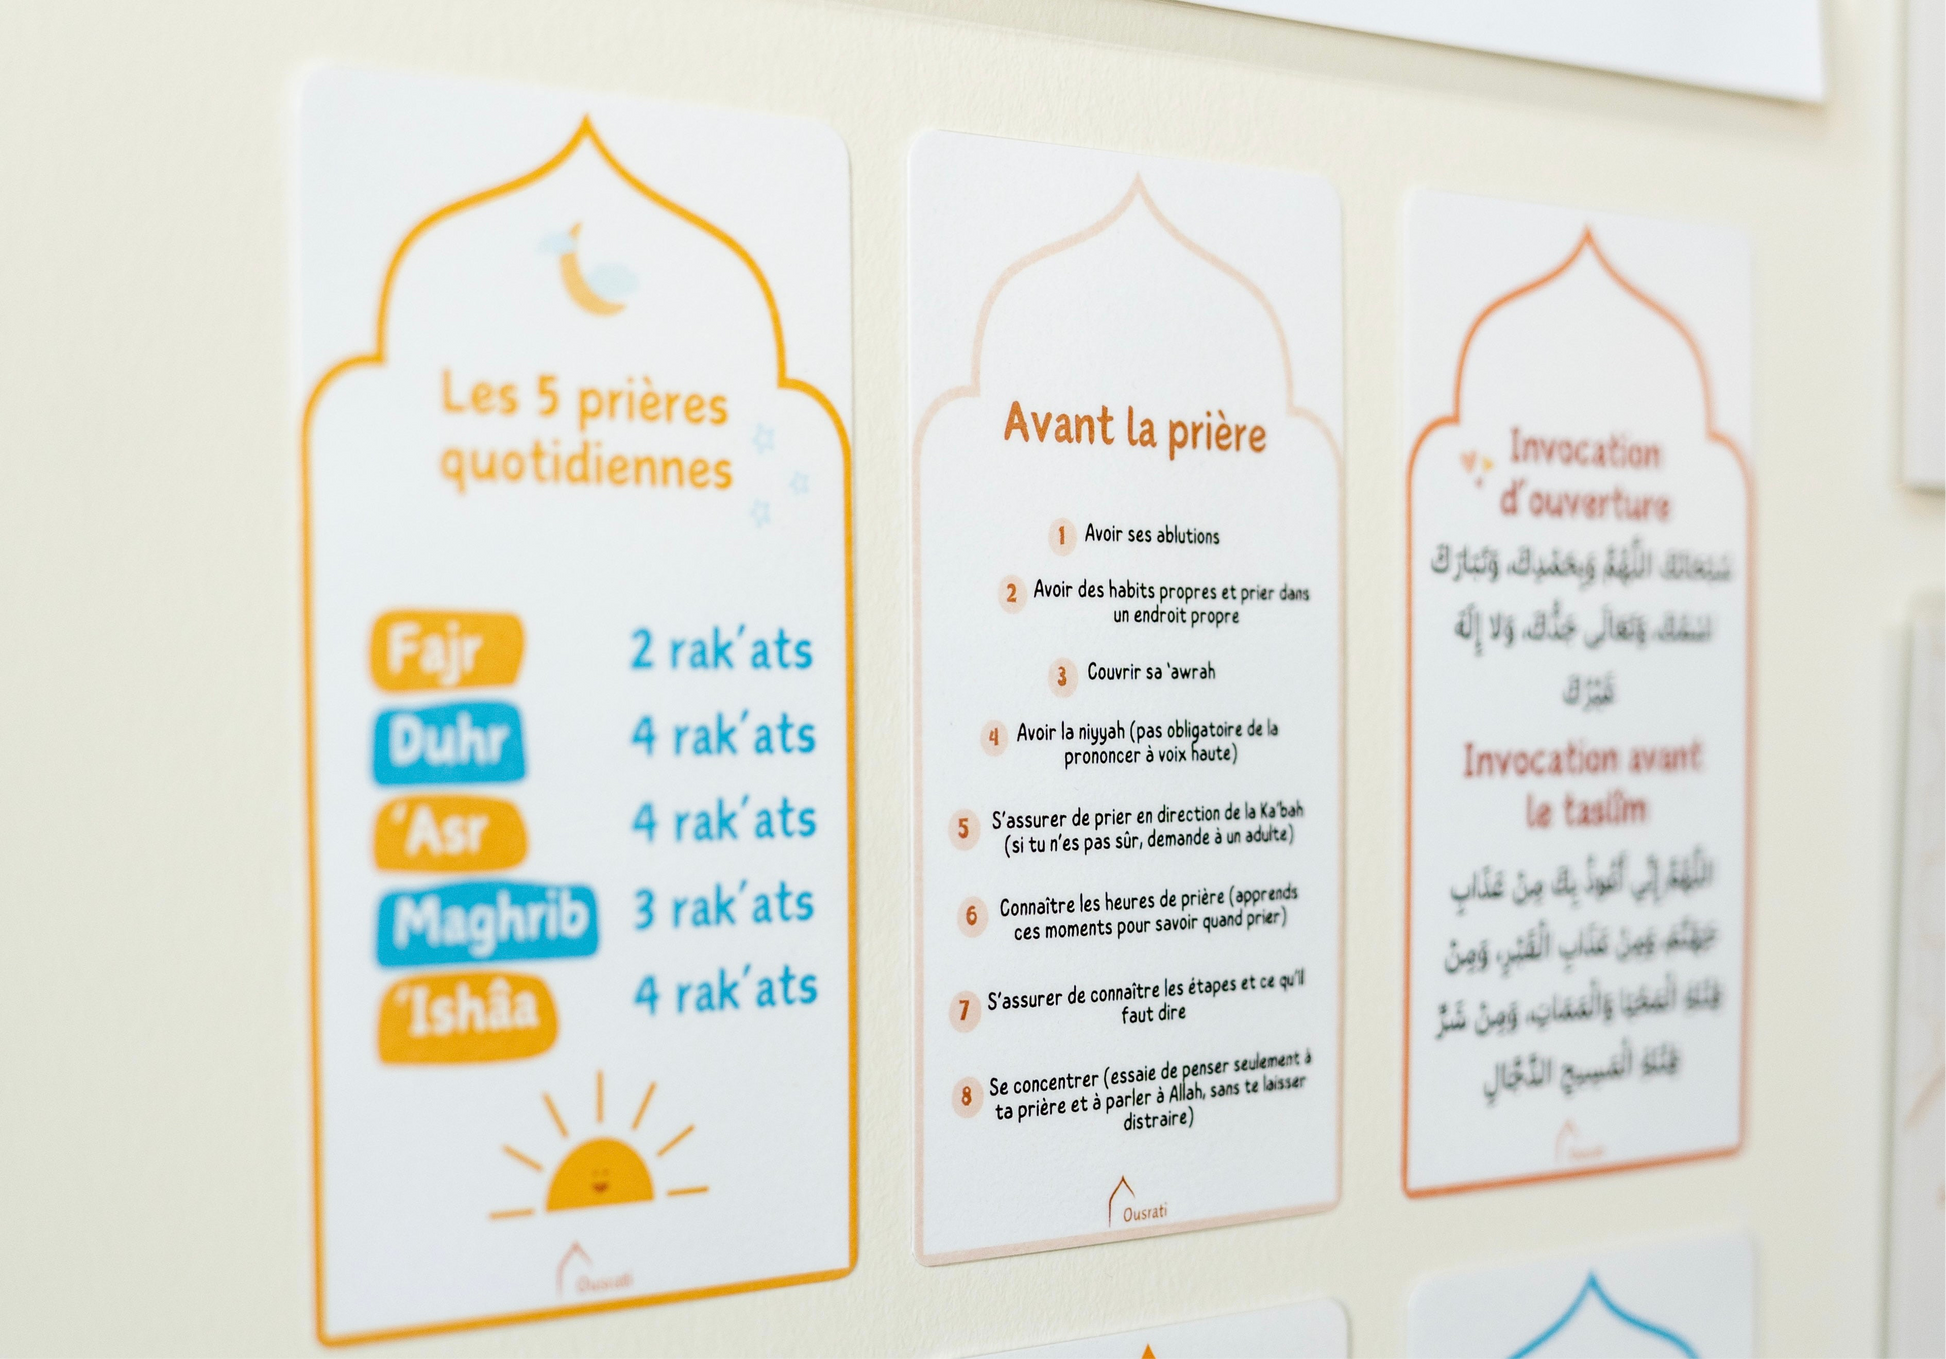 Les 5 prières
quotidiennes
Fajr 2 rak'ats
Duhr 4 rak'ats
'Asr 4 rak'ats
Maghrib 3 rak'ats
'Ishâa 4 rak'ats
Ousrati
Avant la prière
1 Avoir ses ablutions
2 Avoir des habits propres et prier dans
un endroit propre
3 Couvrir sa 'awrah
4 Avoir la niyyah (pas obligatoire de la
prononcer à voix haute)
5 S'assurer de prier en direction de la Ka'bah
(si tu n'es pas sûr, demande à un adulte)
6 Connaître les heures de prière (apprends
ces moments pour savoir quand prier)
7 S'assurer de connaître les étapes et ce qu'il
faut dire
8 Se concentrer (essaie de penser seulement à
ta prière et à parler à Allah, sans te laisser
distraire)
Ousrati
Invocation
d'ouverture
سُبْحَانَكَ اللَّهُمَّ وَبِحَمْدِكَ، وَتَبَارَكَ
اسْمُكَ، وَتَعَالَى جَدُّكَ، وَلَا إِلَهَ
غَيْرُكَ
Invocation avant
le taslîm
اللَّهُمَّ إِنِّي أَعُوذُ بِكَ مِنْ عَذَابِ
جَهَنَّمَ، وَمِنْ عَذَابِ الْقَبْرِ، وَمِنْ
فِتْنَةِ الْمَحْيَا وَالْمَمَاتِ، وَمِنْ شَرِّ
فِتْنَةِ الْمَسِيحِ الدَّجَّالِ